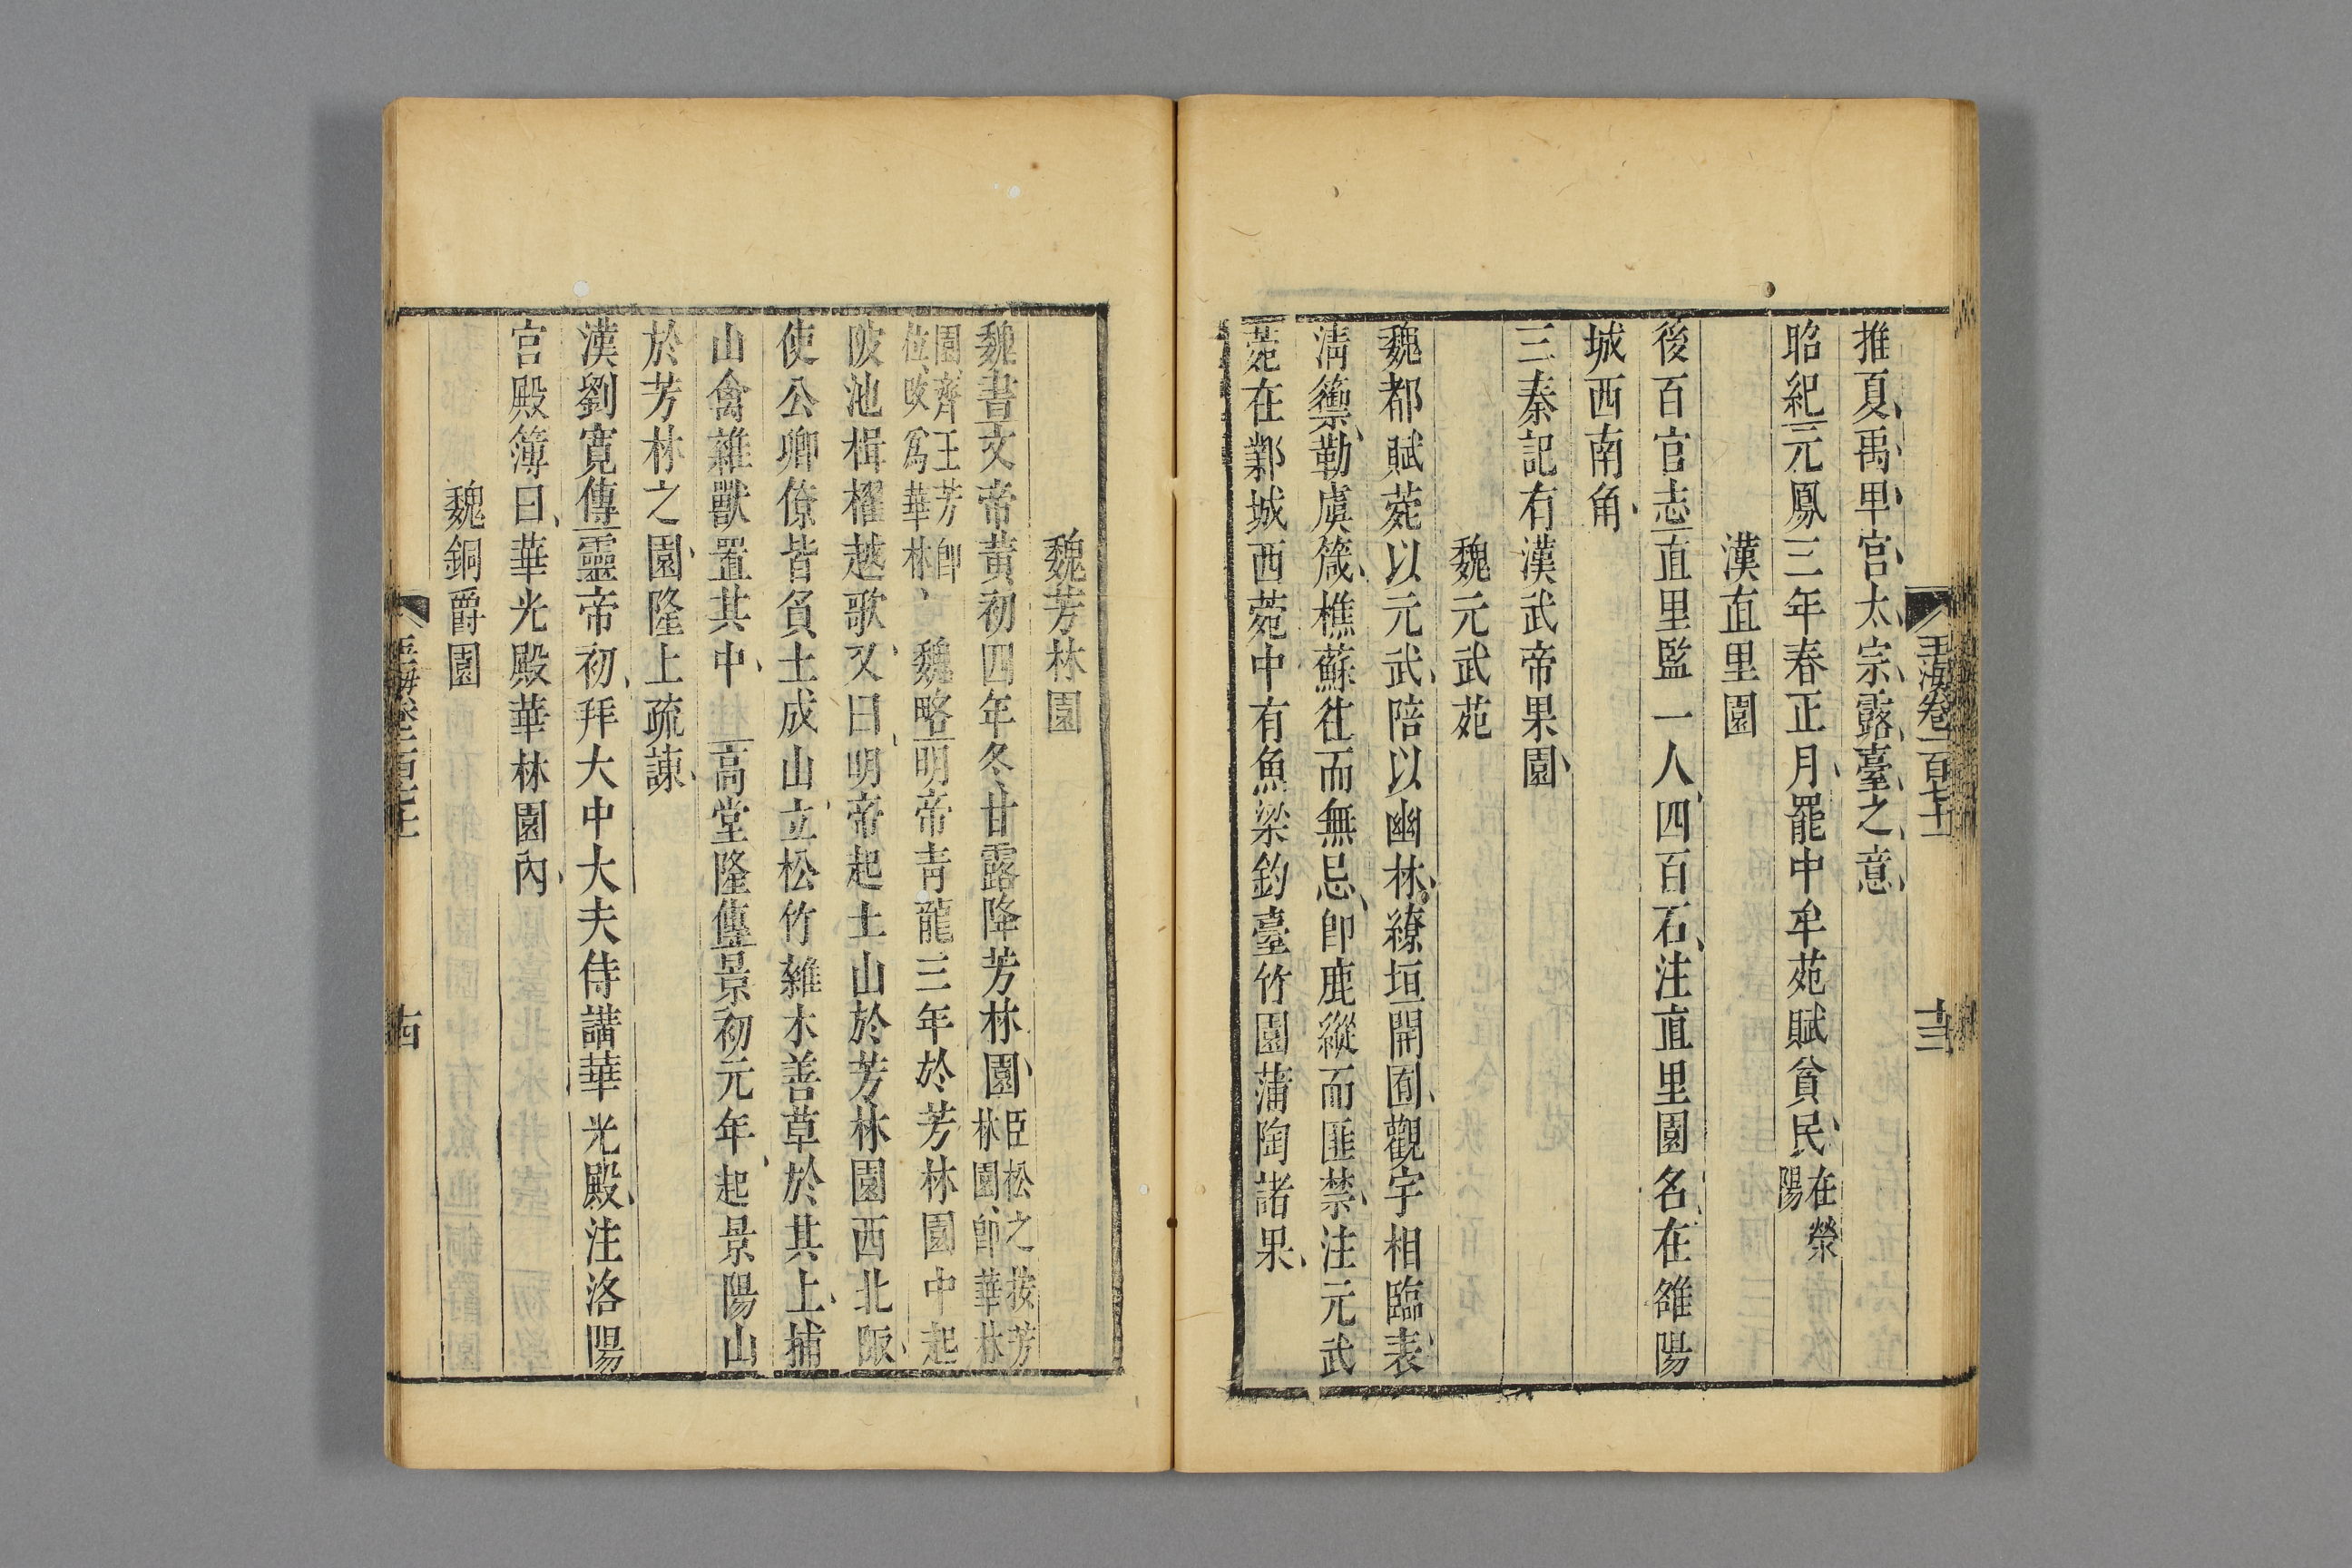 玉海卷一百七十一
十三
推夏禹卑宫太宗露臺之意
昭紀元鳳三年春正月罷中牟苑賦貧民在滎陽
漢直里園
後百官志直里監一人四百石注直里園名在雒陽
城西南角
三秦記有漢武帝果園
魏元武苑
魏都賦菀以元武陪以幽林繚垣開囿觀宇相臨表
清籞勒虞箴樵蘇往而無忌即鹿縱而匪禁注元武
菀在鄴城西菀中有魚梁釣臺竹園蒲陶諸果
魏芳林園
魏書文帝黄初四年冬甘露降芳林園臣松之按芳林園即華林
園齊王芳即位改爲華林魏略明帝青龍三年於芳林園中起
陂池楫櫂越歌又曰明帝起土山於芳林園西北陬
使公卿僚皆負土成山立松竹雜木善草於其上捕
山禽雜獸置其中高堂隆傳景初元年起景陽山
於芳林之園隆上疏諫
漢劉寛傳靈帝初拜大中大夫侍講華光殿注洛陽
宫殿簿曰華光殿華林園內
魏銅爵園
十四